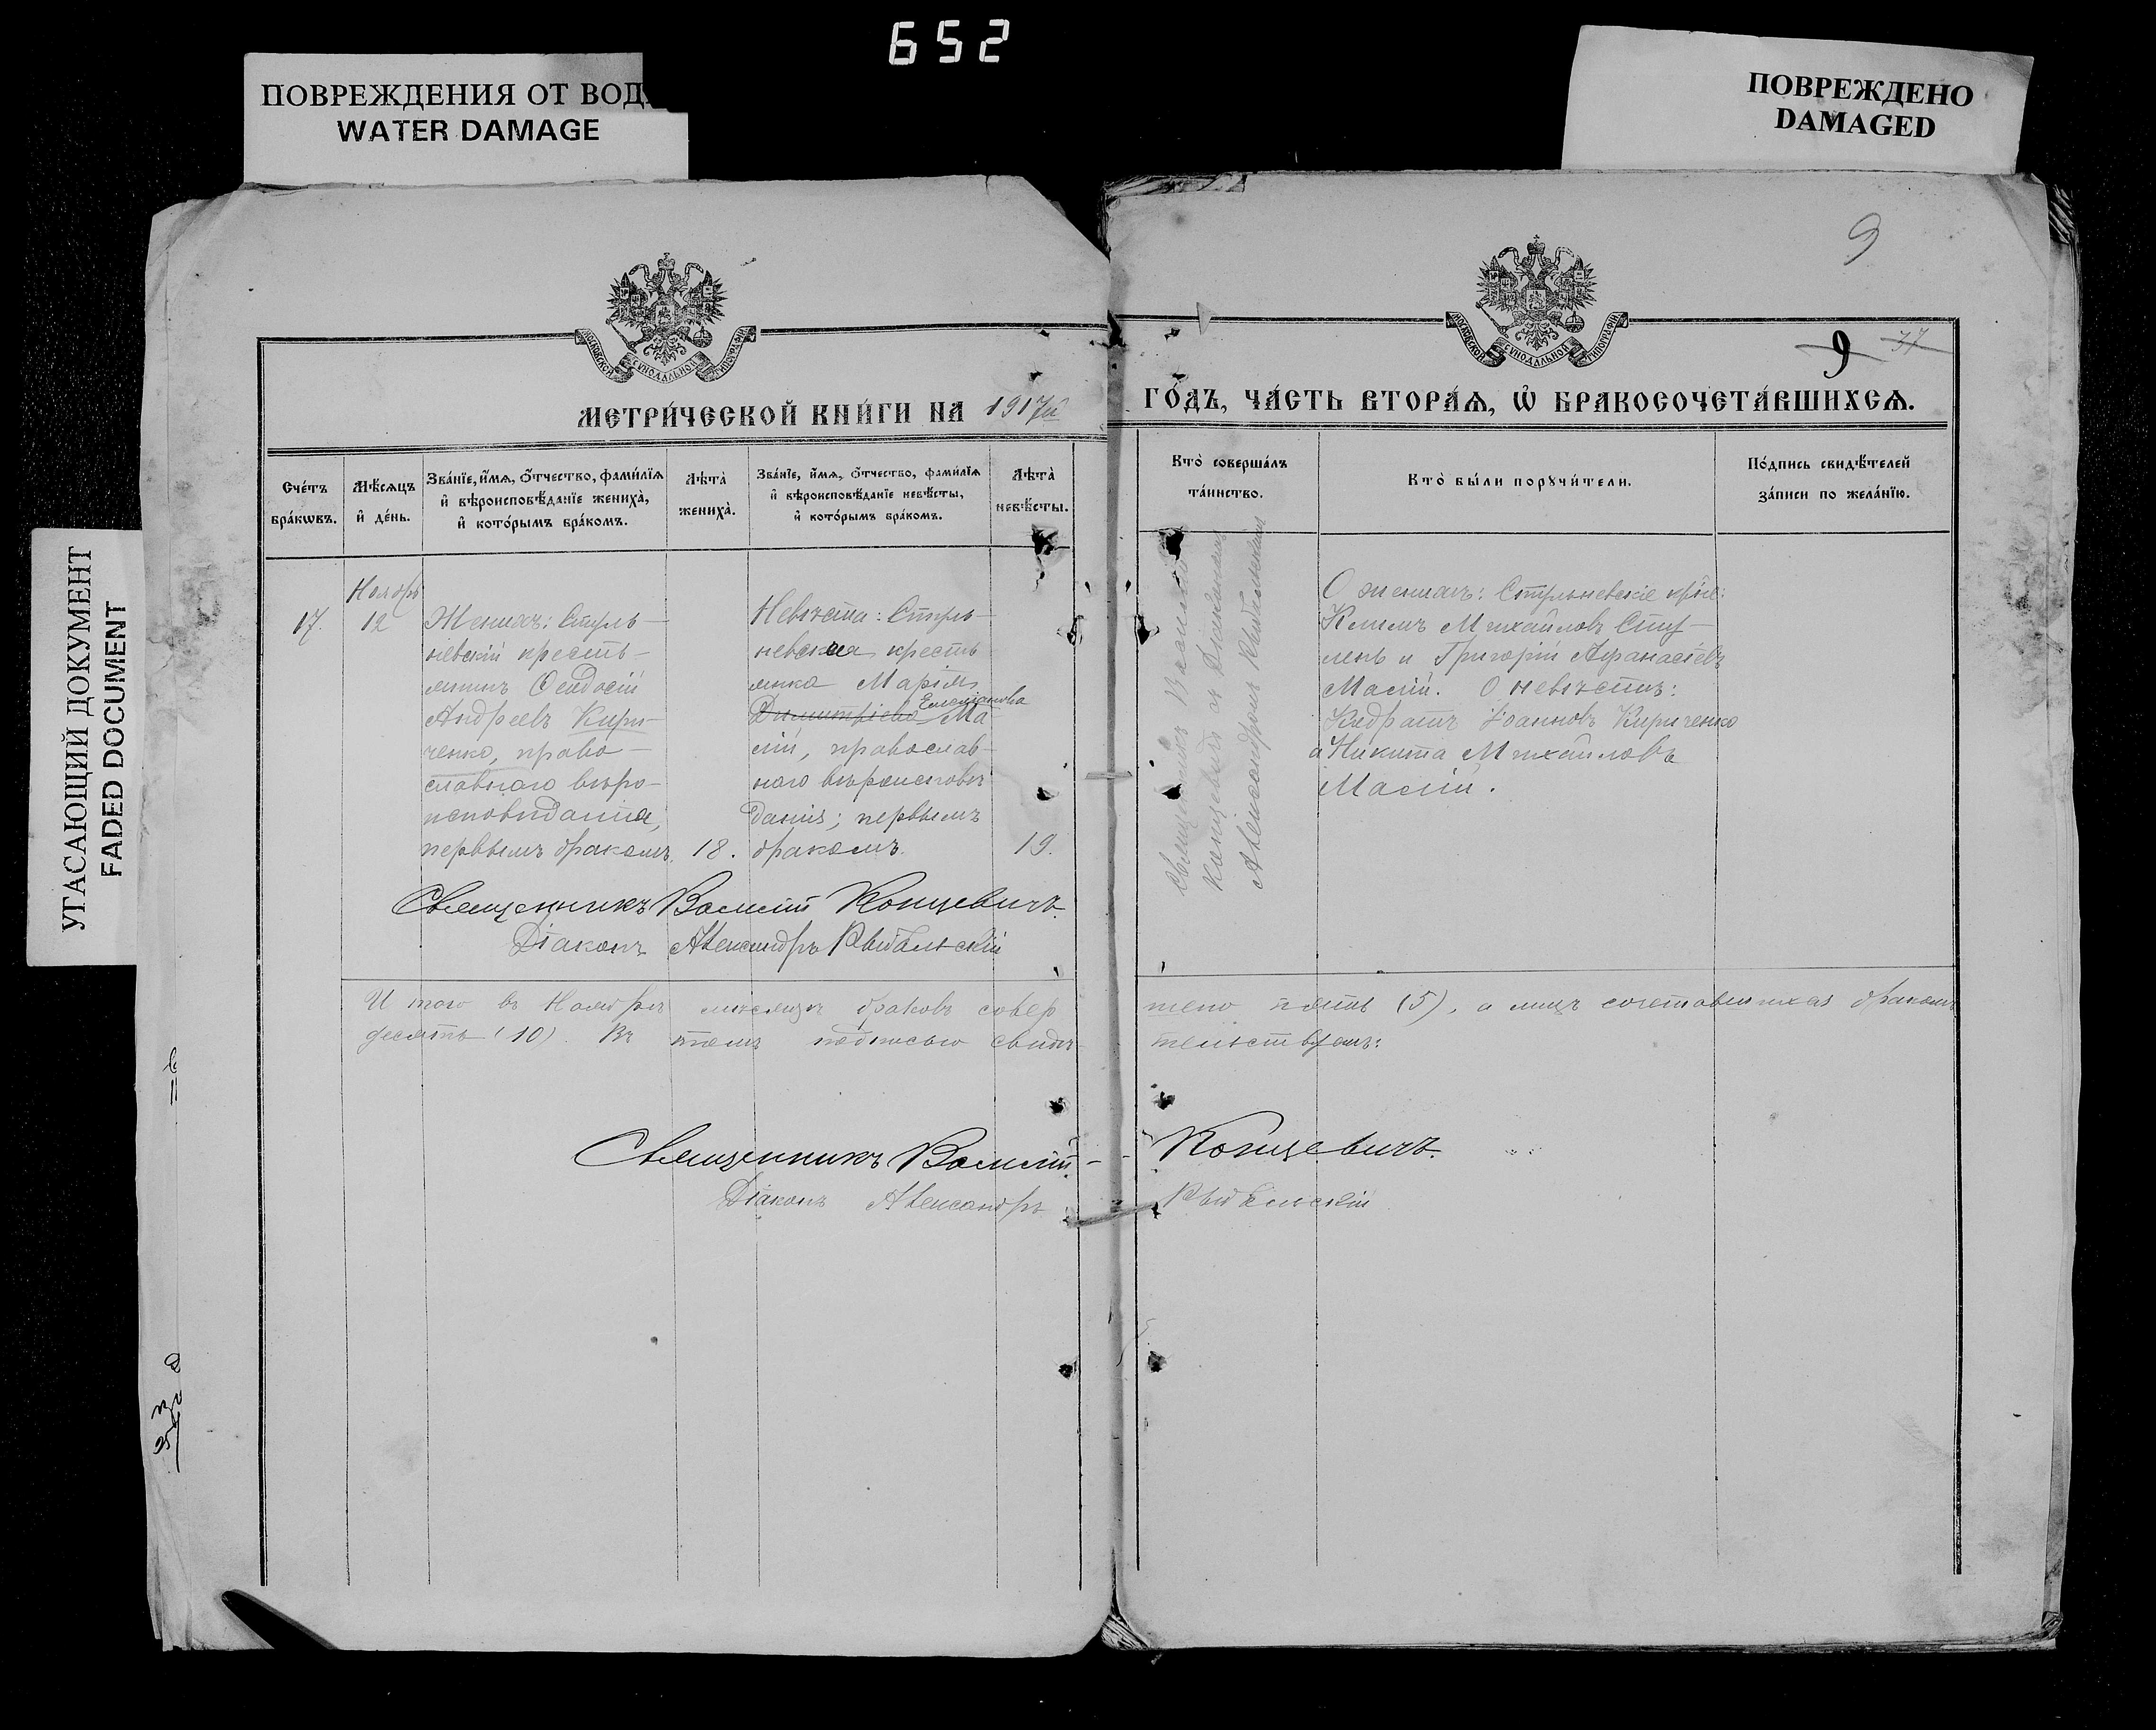 652
ПОВРЕЖДЕНИЯ ОТ ВОД
WATER DAMAGE
ПОВРЕЖДЕНО
DAMAGED
УГАСАЮЩИЙ ДОКУМЕНТ
FADED DOCUMENT
9
9 37
МОСКОВСКОЙ СѴНОДАЛЬНОЙ ТИПОГРАФІИ
МОСКОВСКОЙ СѴНОДАЛЬНОЙ ТИПОГРАФІИ
МЕТРИ́ЧЕСКОЙ КНИ́ГИ НА 1917й
ГО́ДЪ, ЧА́СТЬ ВТОРА́Ѧ, Ѡ҆ БРАКОСОЧЕТА́ВШИХСѦ.
Сче́тъ
бра́кѡвъ.
Мѣ́сѧцъ
и҆ де́нь.
Зва́нїе, и҆́мѧ, ѻ҆́тчество, фами́лїѧ
и҆ вѣроисповѣ́данїе жениха̀,
и҆ кото́рымъ бра́комъ.
Лѣта̀
жениха̀.
Зва́нїе, и҆́мѧ, ѻ҆́тчество, фами́лїѧ
и҆ вѣроисповѣ́данїе невѣ́сты,
и҆ кото́рымъ бра́комъ.
Лѣта̀
невѣ́сты.
Кто̀ соверша́лъ
та́инство.
Кто̀ бы́ли порꙋчи́тели.
По́дпись свидѣ́телей
за́писи по жела́нїю.
Ноябрь
17.
12
Женихъ: Стуль-
невскій кресть-
янинъ Ѳеодосій
Андреевъ Кири-
ченко, право-
славнаго вѣро-
исповѣданія,
первымъ бракомъ.
18.
Невѣста: Стуль-
невская кресть-
янка Марія
Димитріева Емеліанова Ма-
лій, православ-
наго вѣроисповѣ-
данія; первымъ
бракомъ.
19.
Священникъ Василій
Концевичъ съ Діакономъ
Александромъ Рыбальскимъ
О женихѣ: Стульневскіе кр-не:
Михайловъ Сту-
лень и Григорій Аѳанасіевъ
Малій. О невѣстѣ:
Кидратъ Іоанновъ Кириченко
и Никита Михайловъ
Малій.
Священникъ Василій Концевичъ.
Діаконъ Александръ Рыбальскій
И того въ Ноябрѣ мѣсяцѣ браковъ совер
шено пять (5), а лицъ сочетавшихся бракомъ
десять (10). Въ томъ подписью свидѣ-
тельствуемъ:
Священникъ Василій Концевичъ.
Діаконъ Александръ Рыбальскій